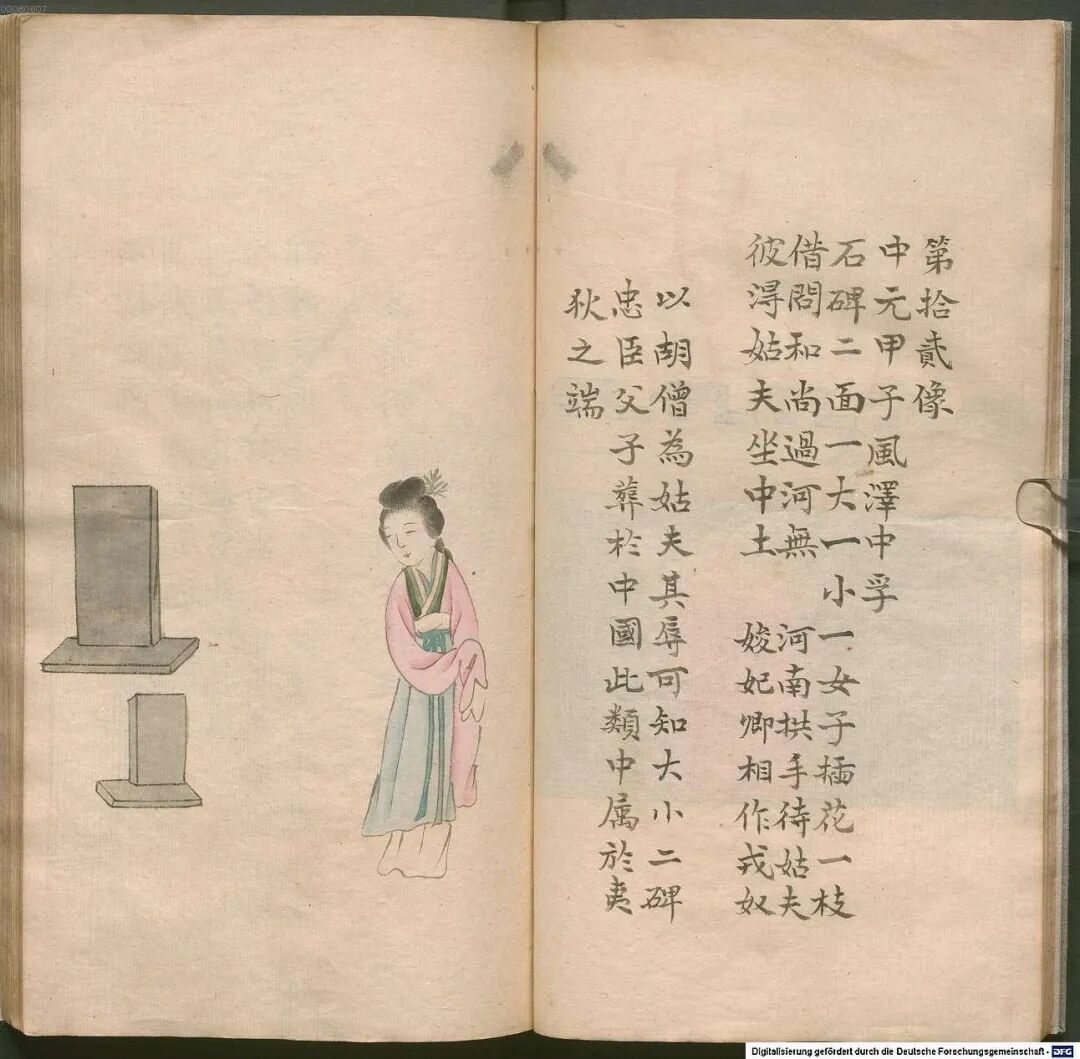 第拾貳像
中元甲子風澤中孚
石碑二面一大一小 一女子插花一枝
借問和尚過河無 河南拱手待姑夫
彼淂姑夫坐中土 妃卿相作戎奴
以胡僧為姑夫其辱可知大小二碑
忠臣父子葬於中國此類中属於夷
狄之端
Digitalisierung gefördert durch die Deutsche Forschungsgemeinschaft - DFG